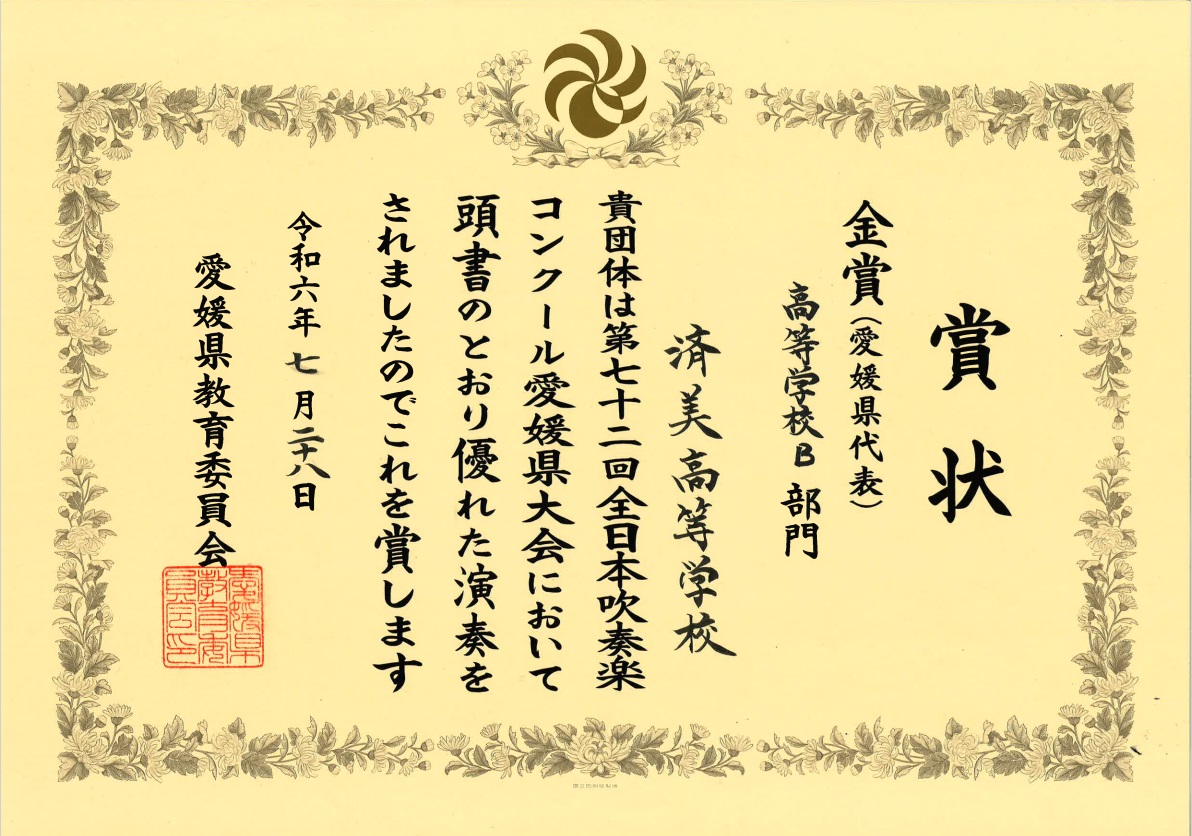 賞状
金賞（愛媛県代表）
高等学校B部門
済美高等学校
貴団体は第七十二回全日本吹奏楽
コンクール愛媛県大会において
頭書のとおり優れた演奏を
されましたのでこれを賞します
令和六年七月二十八日
愛媛県教育委員会
愛媛県
教育委
員会印